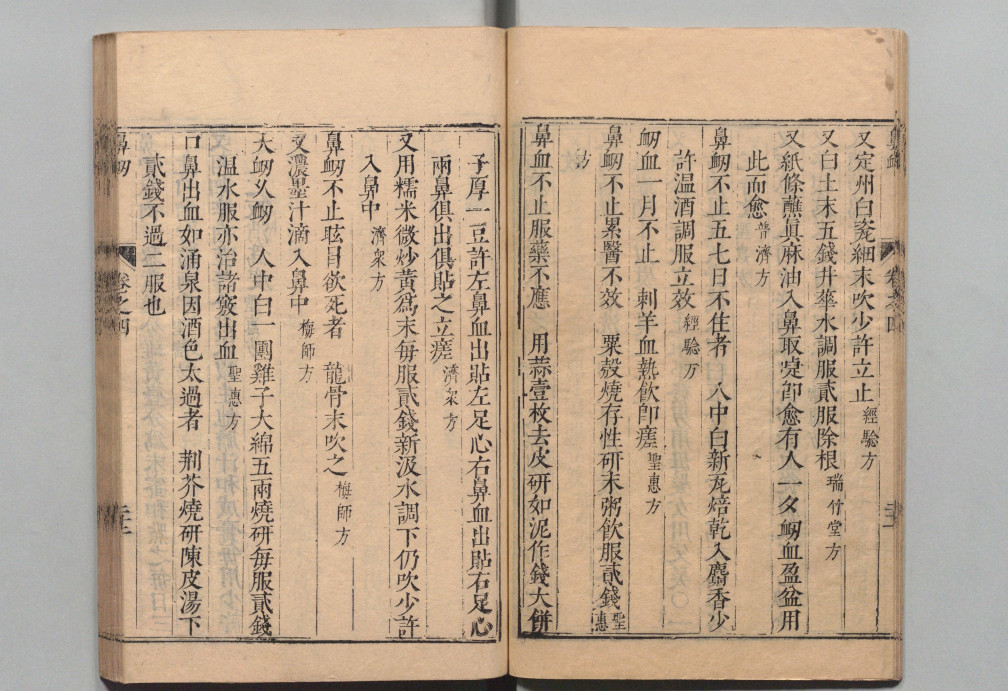 又定州白瓷細末吹少許立止 經驗方
又白土末五錢井華水調服貳服除根 瑞竹堂方
又紙條蘸眞麻油入鼻取嚏卽愈有人一夕衂血盈盆用
此而愈 普濟方
鼻衂不止五七日不住者 人中白新瓦焙乾入麝香少
許温酒調服立效 經驗方
衂血一月不止 刺羊血熱飮卽瘥 聖惠方
鼻衂不止累醫不效 粟殼燒存性研末粥飮服貳錢 聖惠
方
鼻血不止服藥不應 用蒜壹枚去皮研如泥作錢大餠
子厚一豆許左鼻血出貼左足心右鼻血出貼右足心
兩鼻俱出俱貼之立瘥 濟衆方
又用糯米微炒黃爲末每服貳錢新汲水調下仍吹少許
入鼻中 濟衆方
鼻衂不止眩冒欲死者 龍骨末吹之 梅師方
又濃墨汁滴入鼻中 梅師方
大衂久衂 人中白一團雞子大綿五兩燒研每服貳錢
温水服亦治諸竅出血 聖惠方
口鼻出血如涌泉因酒色太過者 荆芥燒研陳皮湯下
貳錢不過二服也
鼻衂 卷之四